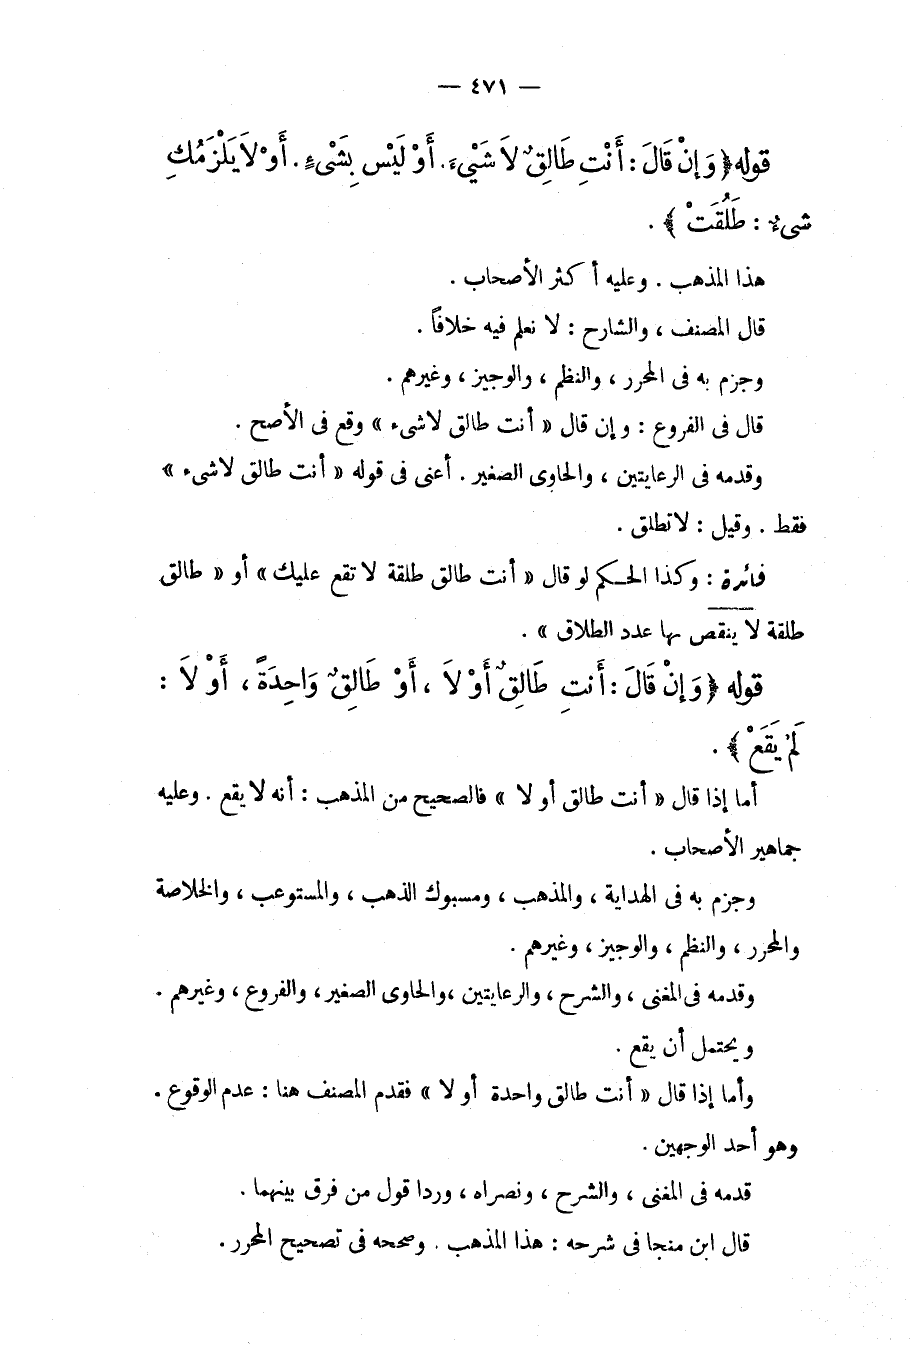 — ٤٧١ —
قوله ﴿ وَإِنْ قَالَ : أَنْتِ طَالِقٌ لاَ شَيْءَ . أَوْ لَيْس بِشَىْءٍ . أَوْ لاَ يَلْزَمُكِ
شىءٌ : طَلُقَتْ ﴾ .
هذا المذهب . وعليه أكثر الأصحاب .
قال المصنف ، والشارح : لا نعلم فيه خلافاً .
وجزم به فى المحرر ، والنظم ، والوجيز ، وغيرهم .
قال فى الفروع : وإن قال « أنت طالق لاشىء » وقع فى الأصح .
وقدمه فى الرعايتين ، والحاوى الصغير . أعنى فى قوله « أنت طالق لاشىء »
فقط . وقيل : لاتطلق .
فائدة : وكذا الحكم لو قال « أنت طالق طلقة لا تقع عليك » أو « طالق
طلقة لا ينقص بها عدد الطلاق » .
قوله ﴿ وَإِنْ قَالَ : أَنتِ طَالِقٌ أَوْ لاَ ، أَوْ طَالِقٌ وَاحِدَةً ، أَوْ لاَ :
لَمْ يَقَعْ ﴾ .
أما إذا قال « أنت طالق أو لا » فالصحيح من المذهب : أنه لا يقع . وعليه
جماهير الأصحاب .
وجزم به فى الهداية ، والمذهب ، ومسبوك الذهب ، والمستوعب ، والخلاصة
والمحرر ، والنظم ، والوجيز ، وغيرهم .
وقدمه فى المغنى ، والشرح ، والرعايتين ، والحاوى الصغير ، والفروع ، وغيرهم .
ويحتمل أن يقع .
وأما إذا قال « أنت طالق واحدة أو لا » فقدم المصنف هنا : عدم الوقوع .
وهو أحد الوجهين .
قدمه فى المغنى ، والشرح ، ونصراه ، وردا قول من فرق بينهما .
قال ابن منجا فى شرحه : هذا المذهب . وصححه فى تصحيح المحرر .